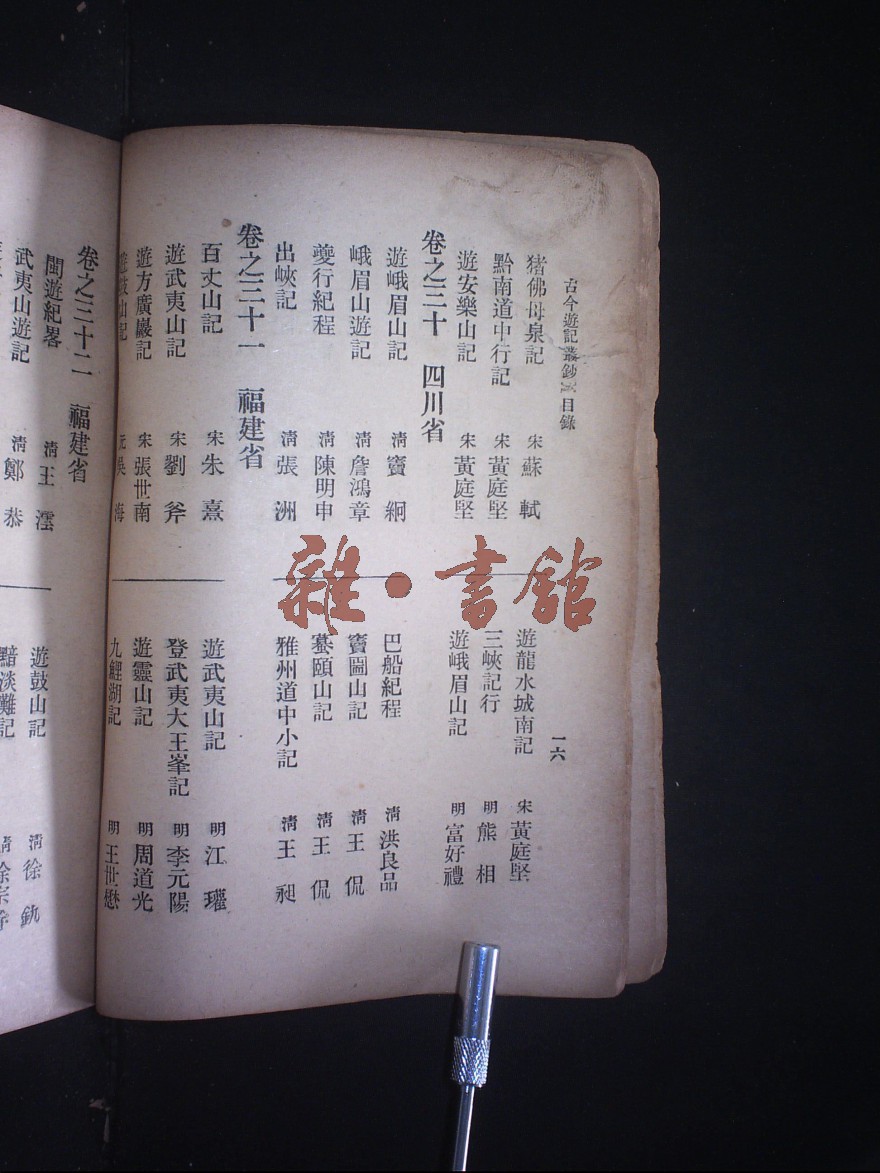 古今遊記叢鈔 目錄
一六
豬佛母泉記 宋 蘇軾
黔南道中行記 宋 黃庭堅
遊安樂山記 宋 黃庭堅
遊龍水城南記 宋 黃庭堅
三峽記行 明 熊相
遊峨眉山記 明 富好禮
卷之三十 四川省
遊峨眉山記 清 竇絅
峨眉山遊記 清 詹鴻章
夔行紀程 清 陳明申
出峽記 清 張洲
巴船紀程 清 洪良品
竇圌山記 清 王侃
蟇頤山記 清 王侃
雅州道中小記 清 王昶
卷之三十一 福建省
百丈山記 宋 朱熹
遊武夷山記 宋 劉斧
遊方廣巖記 宋 張世南
遊鼓山記 元 吳海
遊武夷山記 明 江瓘
登武夷大王峯記 明 李元陽
遊靈山記 明 周道光
九鯉湖記 明 王世懋
卷之三十二 福建省
閩遊紀畧 清 王澐
武夷山遊記 清 鄭恭
遊鼓山記 清 徐釚
黯淡灘記 清 徐宗
雜·書館